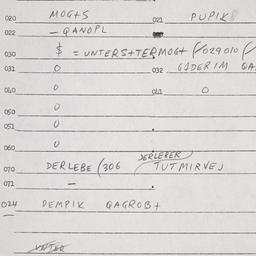 020 MOGTS 021 PUPIK
022 - QANOPL
030 $ = UNTERS+TERMOG+ (029010 (
031 0 032 GIDERIM QA
040 0 041 0
050 0
051 0
060 0
DERLEREK
070 DERLEBE (306 TUTMIRVEJ
072 -
024 DEMPIK QAGROB+
UNTER